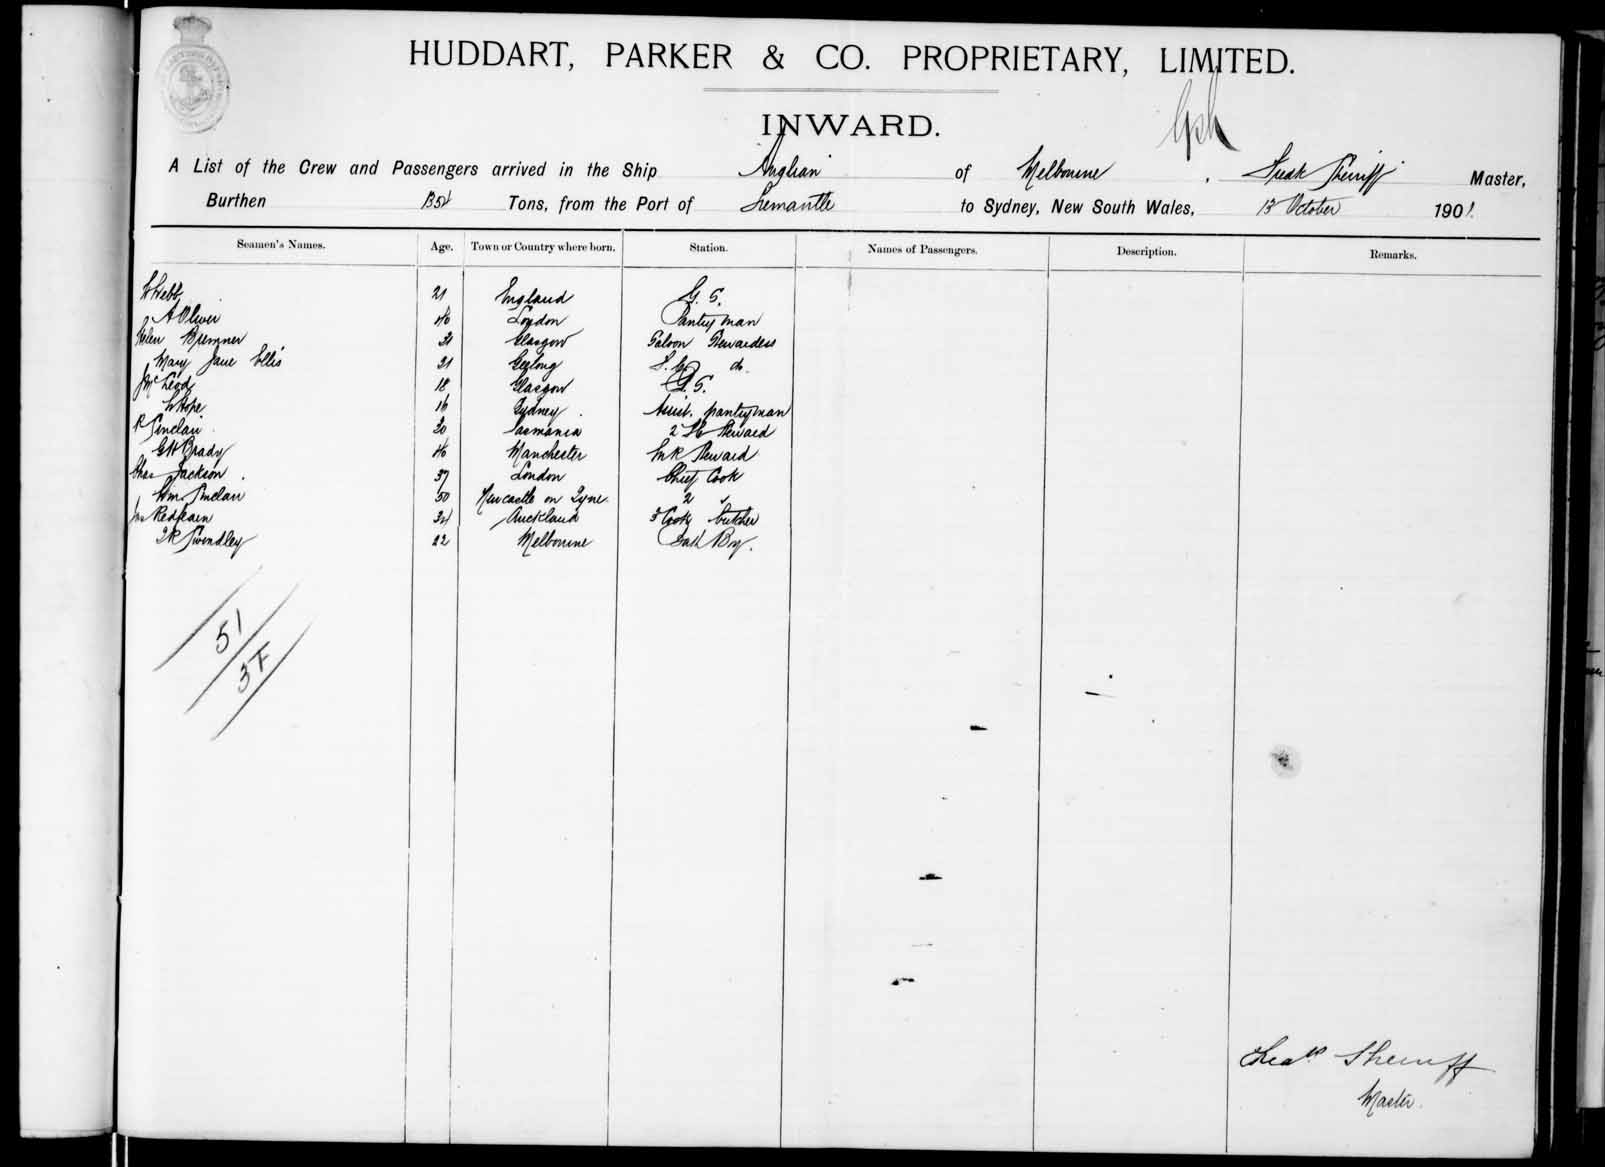 HUDDART, PARKER & CO. PROPRIETARY, LIMITED.
INWARD.
A List of the Crew and Passengers arrived in the Ship Anglian of Melbourne, Sheriff Master,
Burthen Tons, from the Port of Fremantle to Sydney, New South Wales, 13 October 1901
Seamen's Names. Age. Town or Country where born. Station. Names of Passengers. Description. Remarks.
W Webb 21 England G. S.
A Oliver London Pantryman
Helen Bremner Glasgow Saloon Stewardess
Mary Jane Ellis 31 Geelong do.
J McLeod 18 Glasgow G. S.
W Hope 16 Sydney Assist. pantryman
R Sinclair 20 Tasmania 2 Steward
G H Brady Manchester Steward
Chas Jackson 37 London Chief Cook
Wm Sinclair 50 Newcastle on Tyne 2 "
Jas Redfearn Auckland 3 Cook butcher
Swindley 22 Melbourne Bath Boy.
51
37
Sheriff
Master.